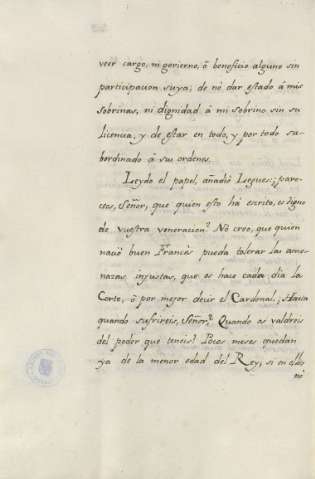 veer cargo, ni govierno, ó beneficio alguno sin
participacion suya; de nó dar estado á mis
sobrinas, ni dignidad á mi sobrino sin su
licencia, y de estar en todo, y por todo su-
bordinado á sus ordenes.
Leydo el papel, añadió Liegues: ¿pare-
ceos, Señor, que quien esto há escrito, es digno
de vuestra veneracion? Nó creo, que quien
nació buen Francés pueda tolerar las ame-
nazas injustas, que os hace cada dia la
Corte, ó por mejor decir el Cardenal. ¿Hasta
quando sufrireis, Señor? Quando os valdreis
del poder que teneis? Pocos meses quedan
ya de la menor edad del Rey, si en ellos
nó